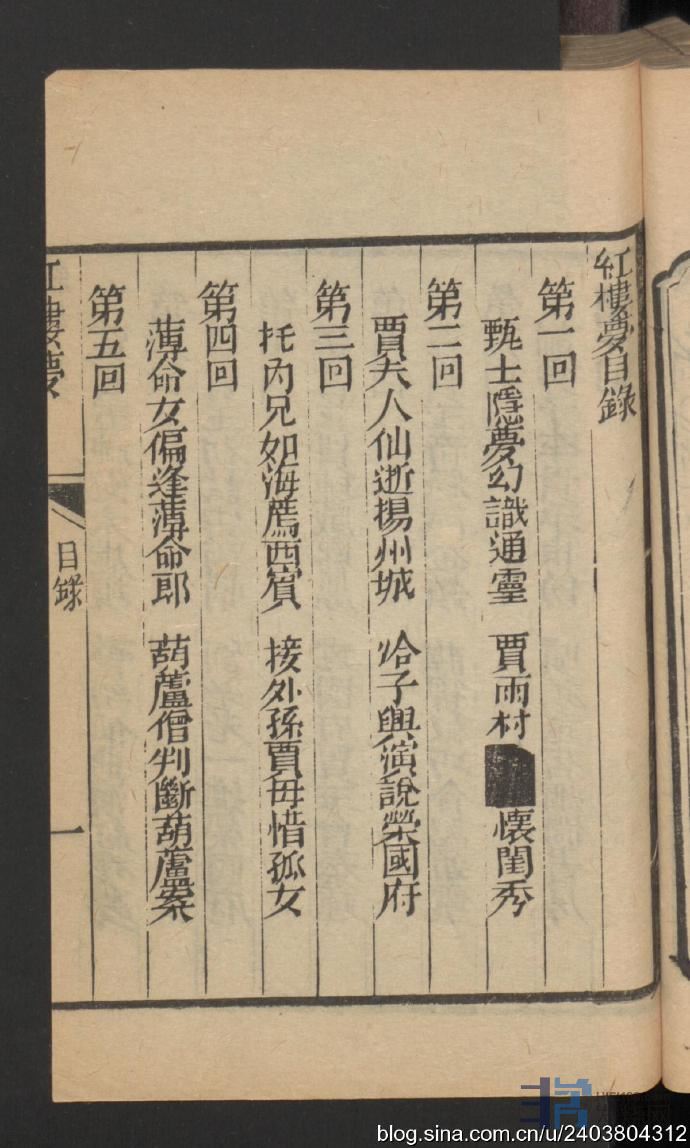 紅樓夢目錄
第一回
甄士隱夢幻識通靈 賈雨村 懷閨秀
第二回
賈夫人仙逝揚州城 冷子興演說榮國府
第三回
托內兄如海薦西賓 接外孫賈母惜孤女
第四回
薄命女偏逢薄命郎 葫蘆僧判斷葫蘆案
第五回
紅樓夢 目錄 一
blog.sina.com.cn/u/2403804312